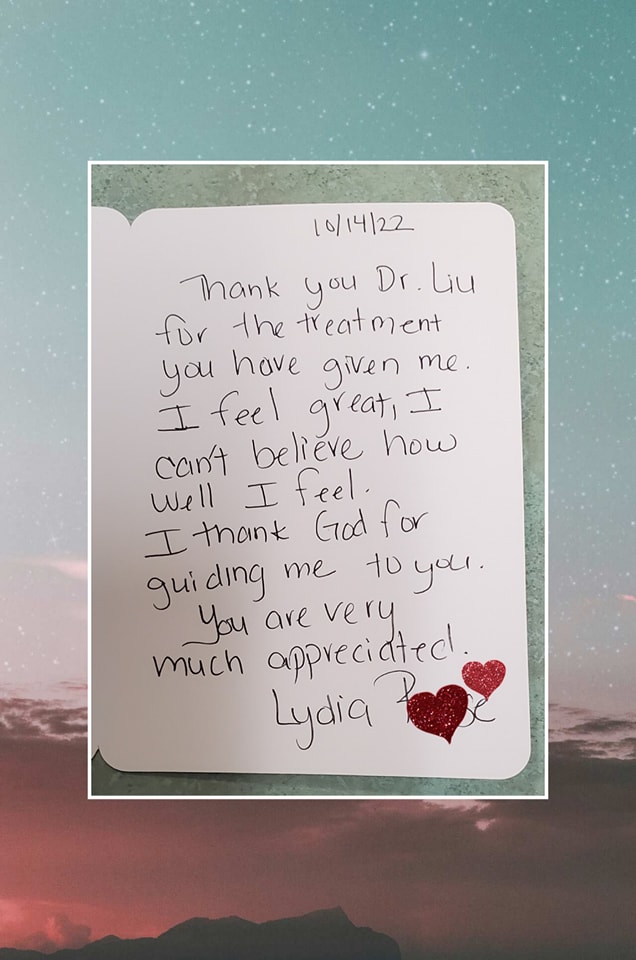 10/14/22
Thank you Dr. Liu
for the treatment
you have given me.
I feel great, I
can't believe how
well I feel.
I thank God for
guiding me to you.
You are very
much appreciated.
Lydia